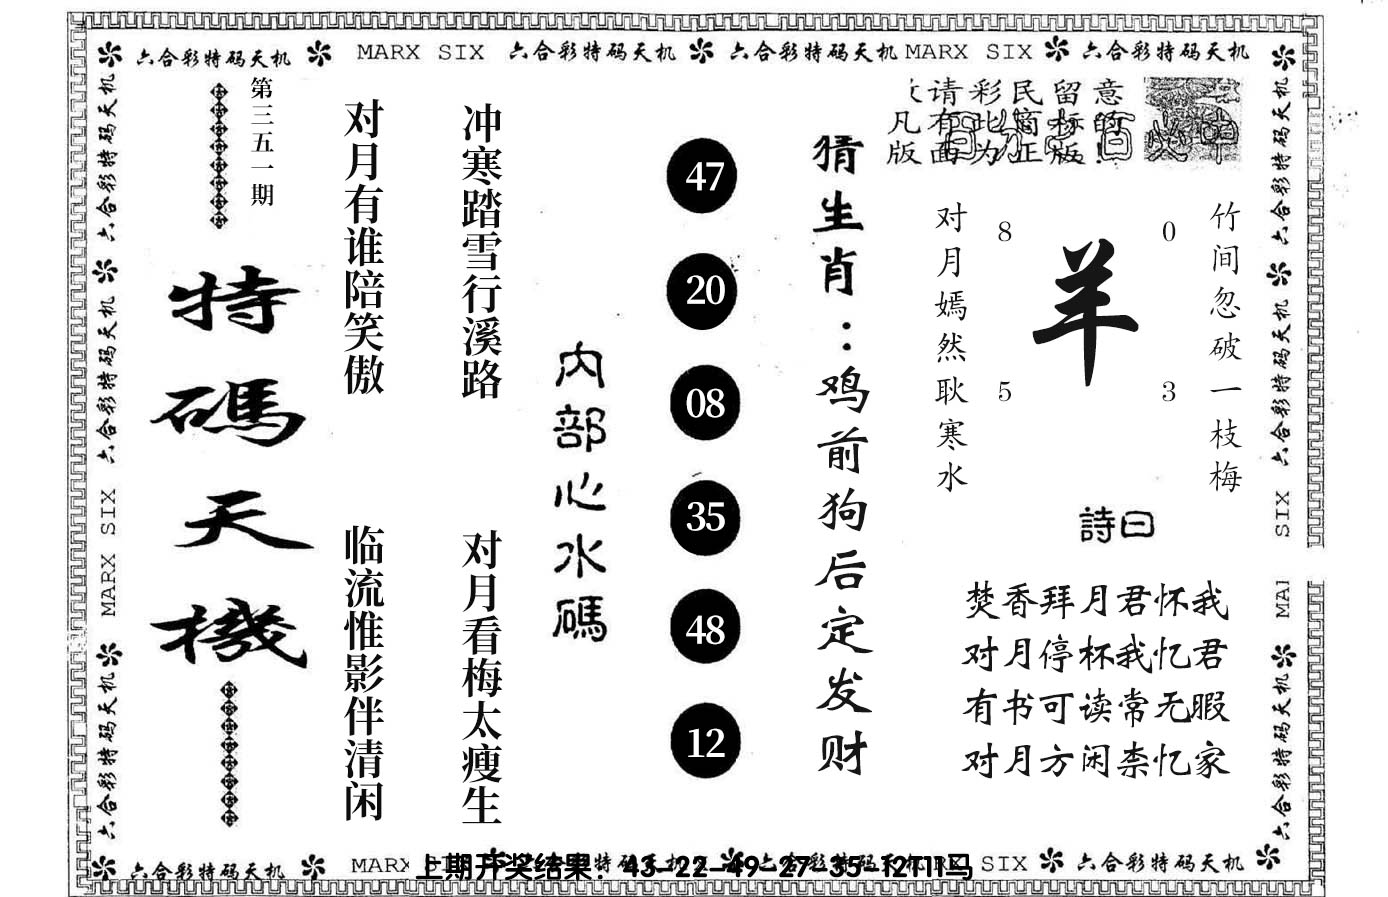 六合彩特码天机 MARX SIX 六合彩特码天机 六合彩特码天机 MARX SIX 六合彩特码天机
第三五一期
特碼天機
对月有谁陪笑傲
临流惟影伴清闲
冲寒踏雪行溪路
对月看梅太瘦生
内部心水碼
47
20
08
35
48
12
猜生肖：鸡前狗后定发财
请彩民留意
凡有此商标的
版面为正版!
竹间忽破一枝梅
对月嫣然耿寒水
8 0
羊
5 3
詩曰
焚香拜月君怀我
对月停杯我忆君
有书可读常无暇
对月方闲柰忆家
六合彩特码天机 六合彩特码天机 MARX SIX 六合彩特码天机
六合彩特码天机 六合彩特码天机 SIX 六合彩特码天机
六合彩特码天机 MARX SIX 六合彩特码天机
上期开奖结果：43-22-49-27-35-12T11马